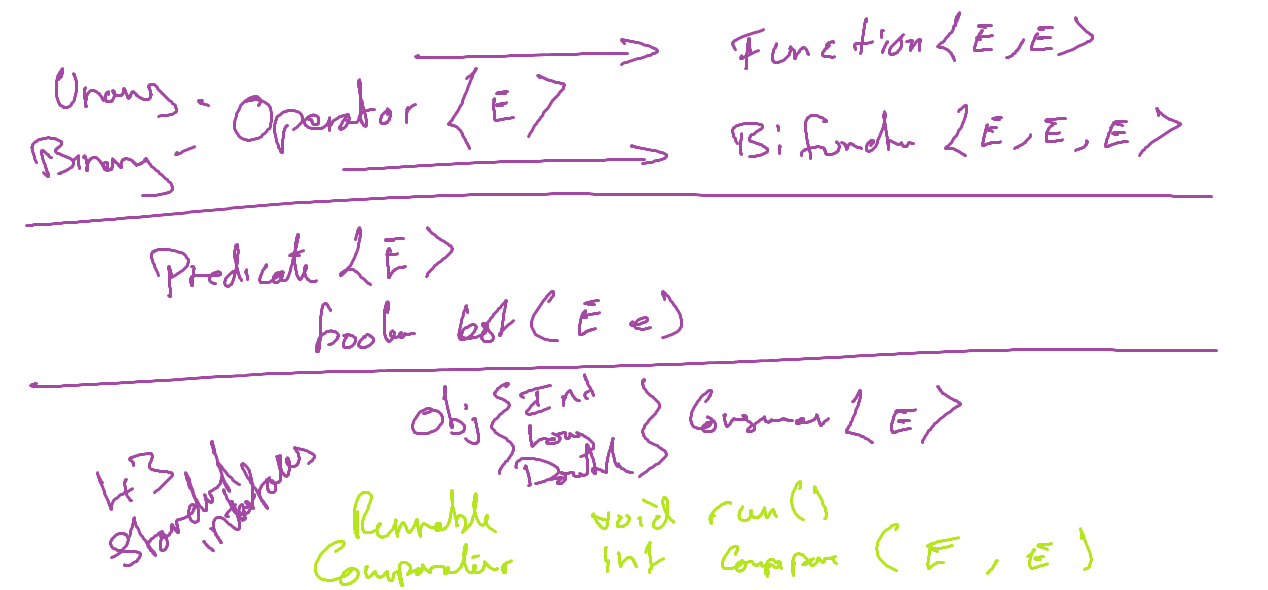 Unary - Operator <E> → Function <E, E>
Binary - → Bifunctn <E, E, E>
Predicate <E>
boolean test (E e)
Obj { Int Long Double } Consumer <E>
43 Standard interfaces
Runnable void run()
Comparator int compapare (E, E)